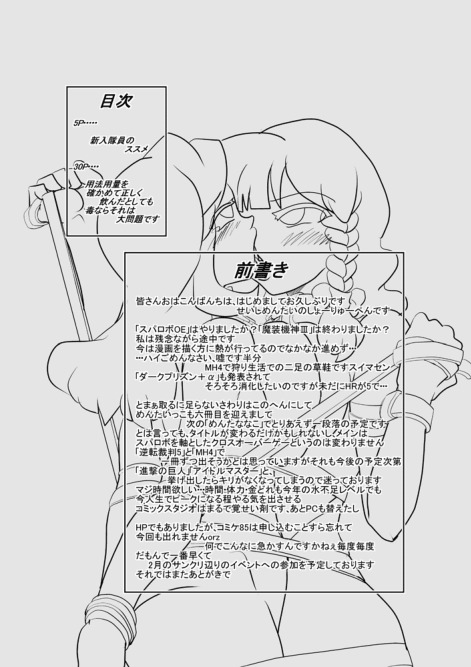 目次
5P……
新入隊員の
ススメ
30P……
用法用量を
確かめて正しく
飲んだとしても
毒ならそれは
大問題です
前書き
皆さんおはこんばんちは、はじめましてお久しぶりです
せいしめんたいのしょーりゅーへんです
「スパロボOE」はやりましたか？「魔装機神Ⅲ」は終わりましたか？
私は残念ながら途中です
今は漫画を描く方に熱が行ってるのでなかなか進めず…
…ハイごめんなさい、嘘です半分
MH4で狩り生活での二足の草鞋ですスイマセン
「ダークプリズン＋α」も発表されて
そろそろ消化したいのですが未だにHRが5で…
とまぁ取るに足らないさわりはこのへんにして
めんたいっこも六冊目を迎えまして
次の「めんたななこ」でとりあえず一段落の予定です
とは言っても、タイトルが変わるだけかもしれないし、メインは
スパロボを軸としたクロスオーバーゲーというのは変わりません
「逆転裁判5」と「MH4」で
一冊ずつ出そうかとは思っていますがそれも今後の予定次第
「進撃の巨人」「アイドルマスター」と、
挙げ出したらキリがなくなってしまうので迷っております
マジ時間欲しい…時間・体力・金どれも今年の水不足レベルでも
今人生でピークになる程やる気を出させる
コミックスタジオはまるで覚せい剤です、あとPCも替えたし
HPでもありましたが、コミケ85は申し込むことすら忘れて
今回も出れませんorz
何でこんなに急かすんですかねぇ毎度毎度
だもんで一番早くて
2月のサンクリ辺りのイベントへの参加を予定しております
それではまたあとがきで